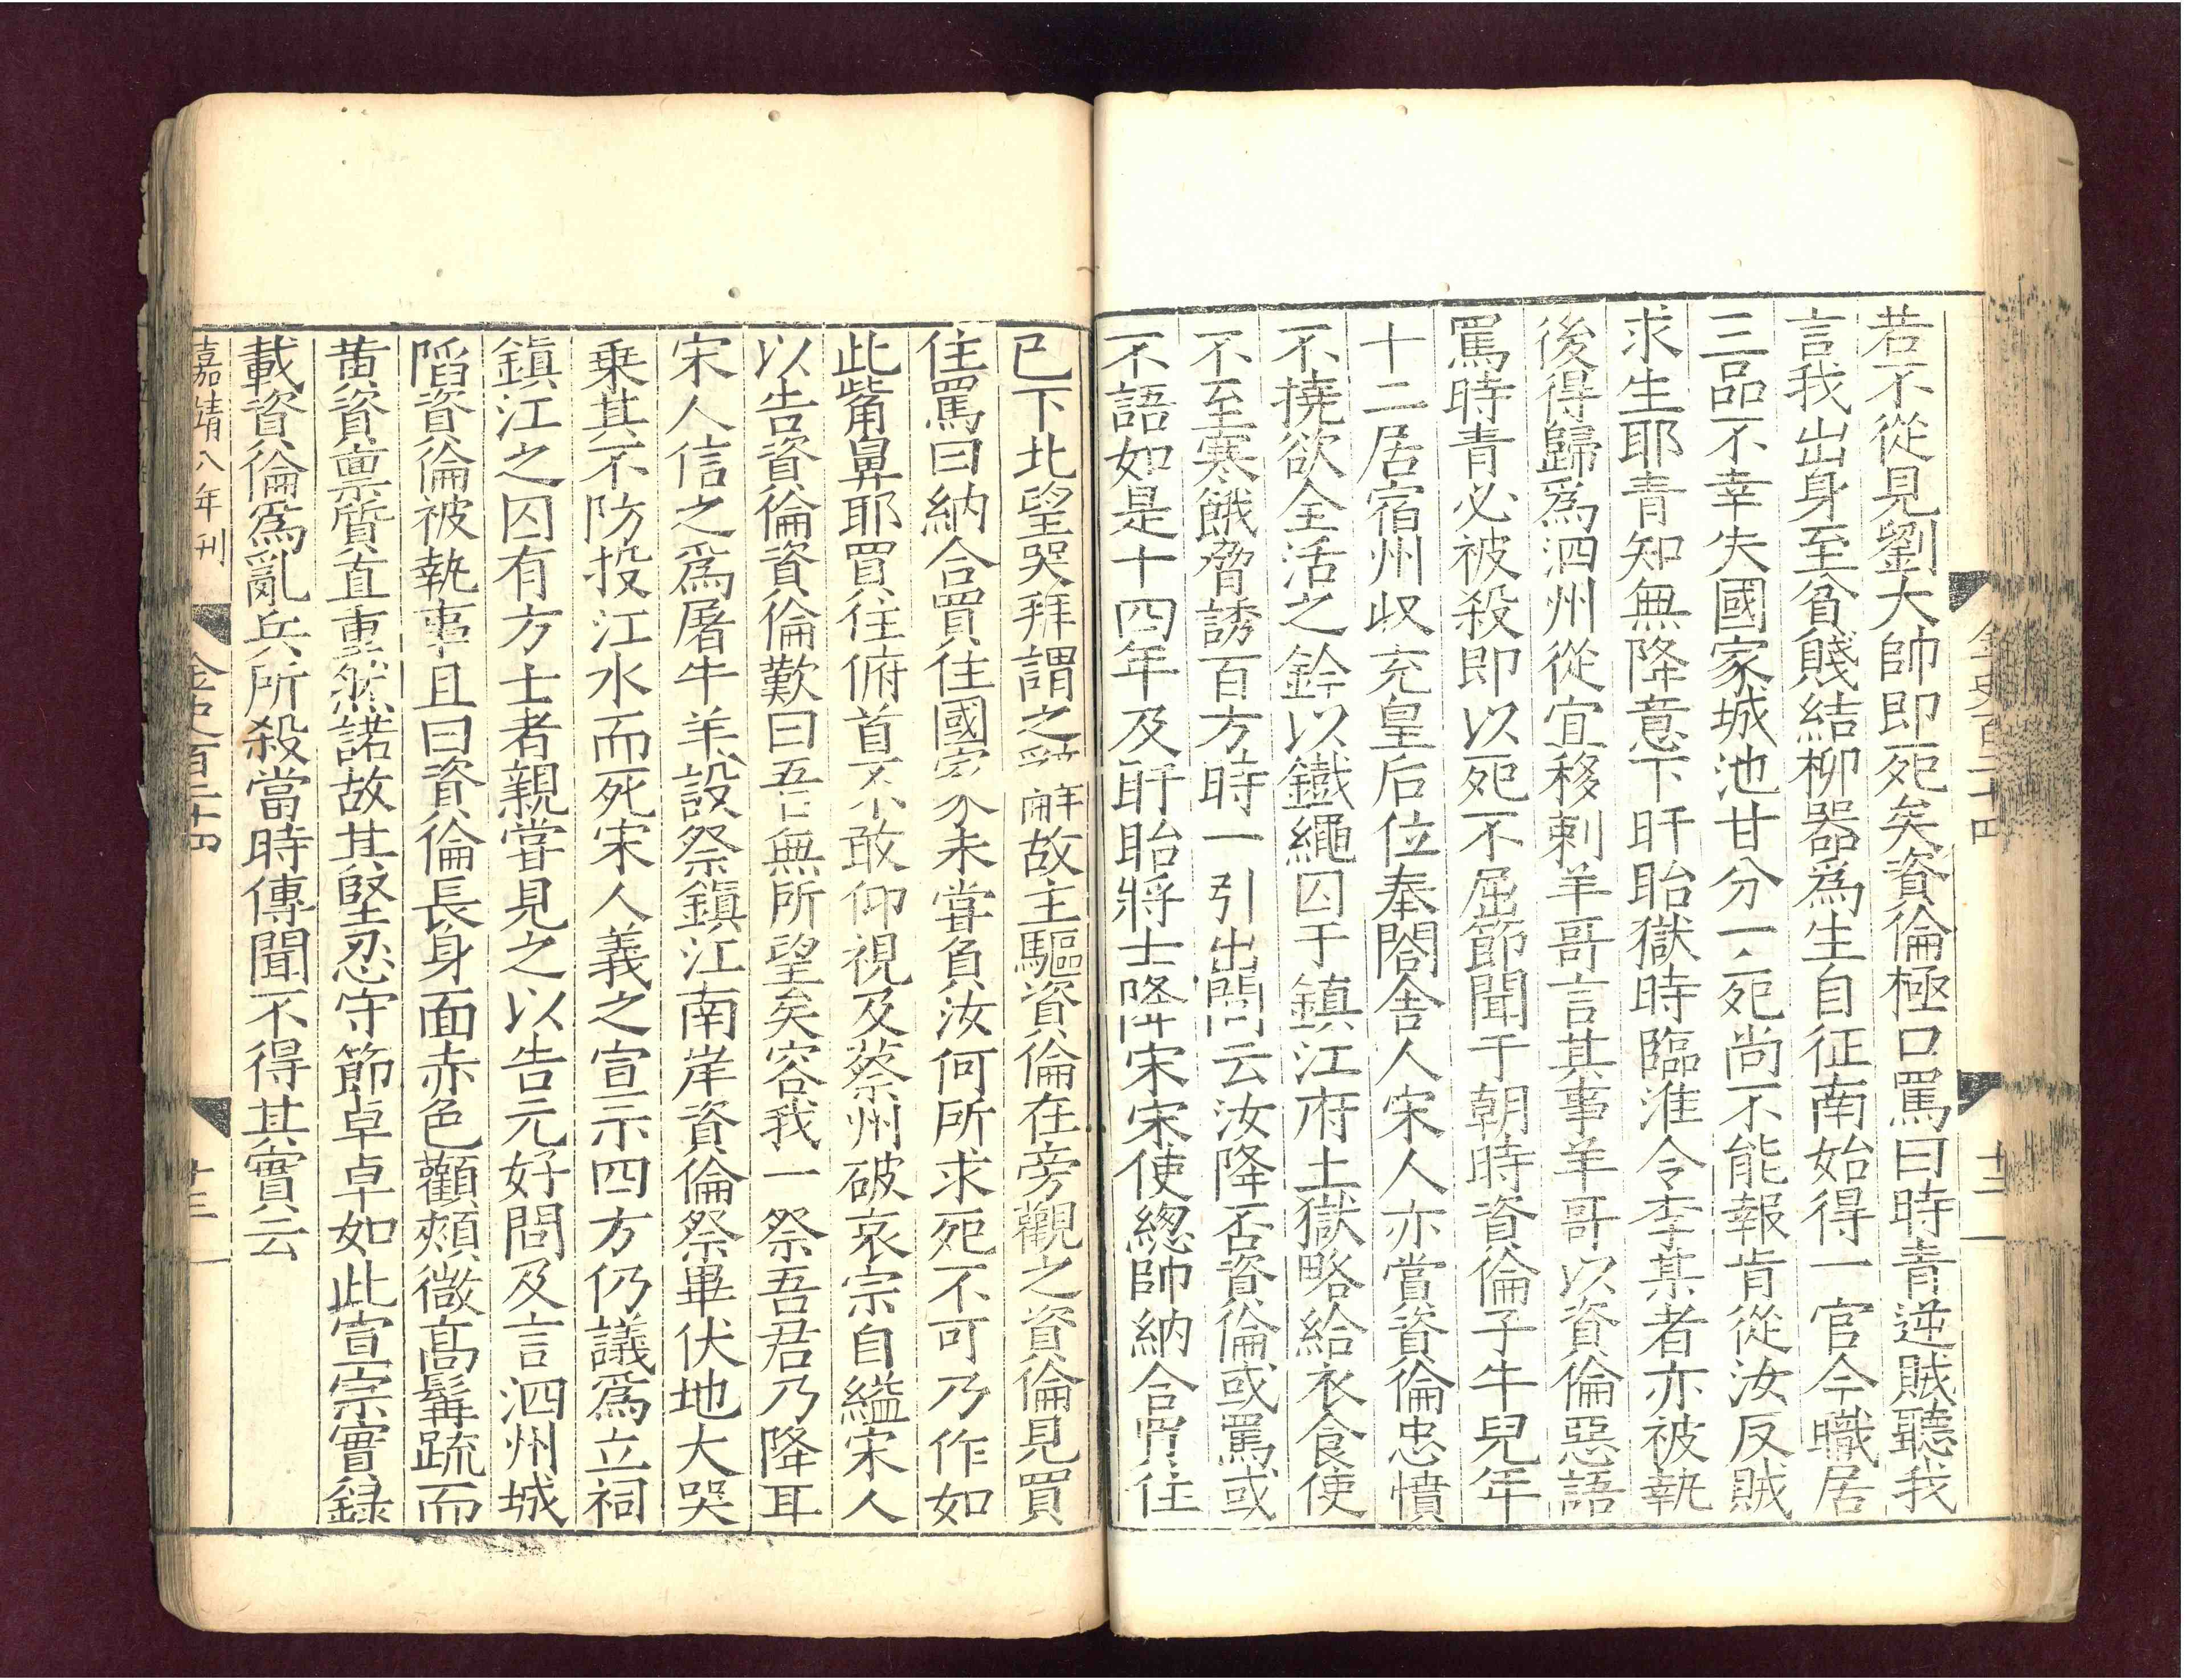 若不從見劉大帥即死矣資倫極口罵曰時青逆賊聽我
言我出身至貧賤結柳器爲生自征南始得一官今職居
三品不幸失國家城池甘分一死尚不能報肯從汝反賊
求生耶青知無降意下盱眙獄時臨淮令李某者亦被執
後得歸爲泗州從宜移剌羊哥言其事羊哥以資倫惡語
罵時青必被殺即以死不屈節聞于朝時資倫子牛兒年
十二居宿州收充皇后位奉閤舍人宋人亦當資倫忠憤
不撓欲全活之鈐以鐵繩囚于鎮江府土獄略給衣食使
不至寒餓脅誘百方時一引出問云汝降否資倫或罵或
不語如是十四年及盱眙將士降宋宋使總帥納合買住
已下北望哭拜謂之辭故主驅資倫在旁觀之資倫見買
住罵曰納合買住國家未嘗負汝何所求死不可乃作如
此觜鼻耶買住俯首不敢仰視及蔡州破哀宗自縊宋人
以告資倫資倫歎曰吾無所望矣容我一祭吾君乃降耳
宋人信之爲屠牛羊設祭鎮江南岸資倫祭畢伏地大哭
乘其不防投江水而死宋人義之宣示四方仍議爲立祠
鎮江之囚有方士者親嘗見之以告元好問及言泗州城
陷資倫被執事且曰資倫長身面赤色顴頰微高髯疏而
黃資稟質直重然諾故其堅忍守節卓卓如此宣宗實録
載資倫爲亂兵所殺當時傳聞不得其實云
嘉靖八年刊 金史百二十四 十三